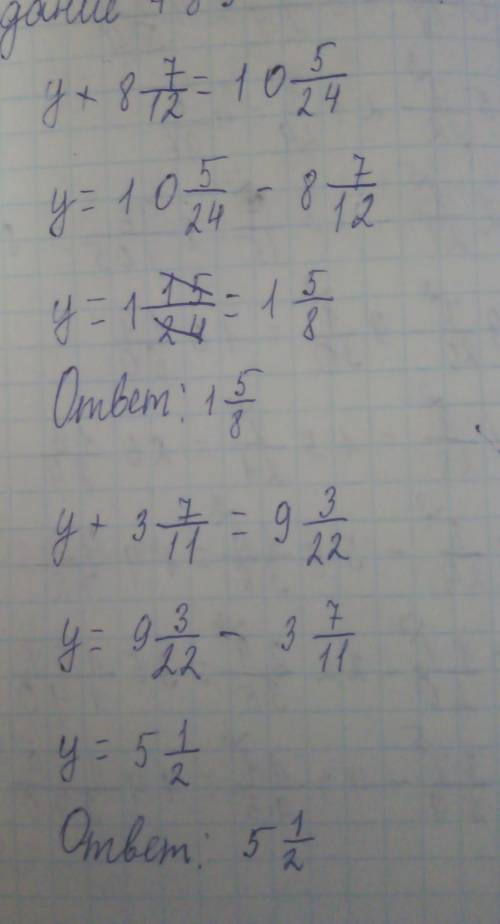 дание
y + 8 7/12 = 10 5/24
y = 10 5/24 - 8 7/12
y = 1 15/24 = 1 5/8
Ответ: 1 5/8
y + 3 7/11 = 9 3/22
y = 9 3/22 - 3 7/11
y = 5 1/2
Ответ: 5 1/2